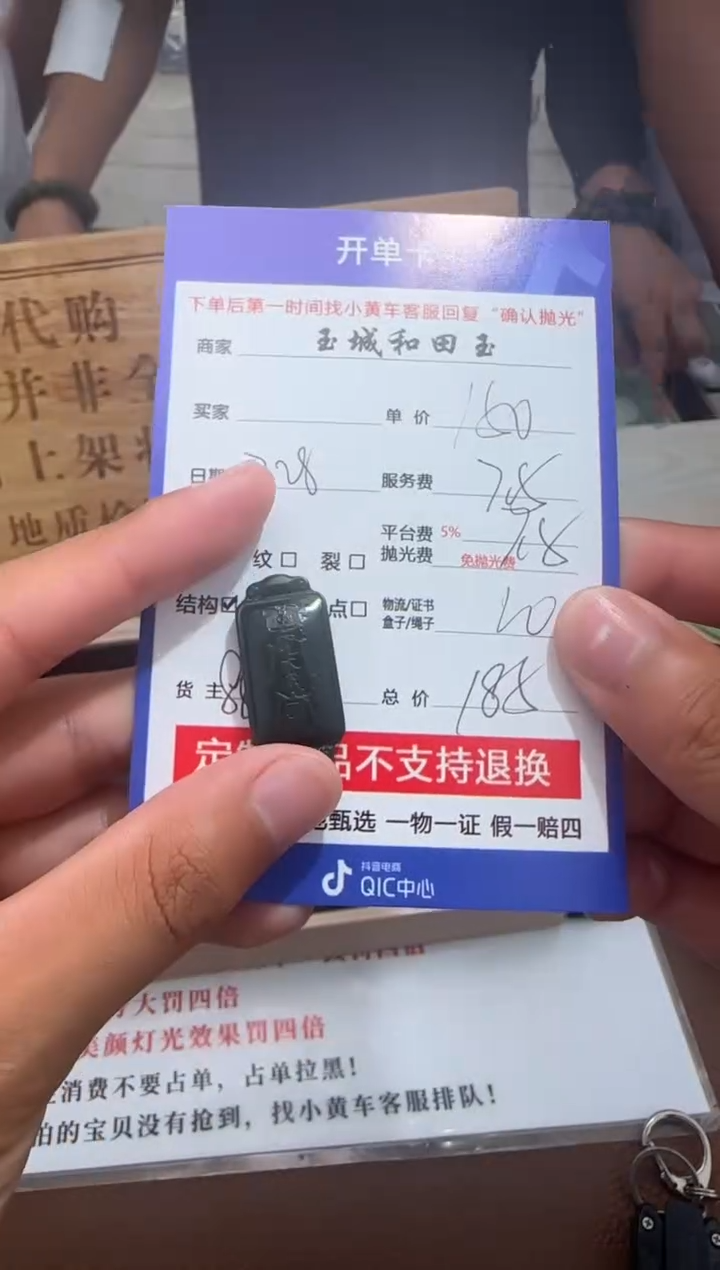 开单卡
下单后第一时间找小黄车客服回复“确认抛光”
商家 玉城和田玉
买家 单价 160
日期 28 服务费 7.5
平台费 5%
抛光费 免抛光费
纹□ 裂□
结构☑ 点□ 物流/证书 10
盒子/绳子
货主 总价 185
品不支持退换
甄选 一物一证 假一赔四
抖音电商
QIC中心
代购
并非全
上架
地质检
大罚四倍
美颜灯光效果罚四倍
消费不要占单，占单拉黑！
拍的宝贝没有抢到，找小黄车客服排队！